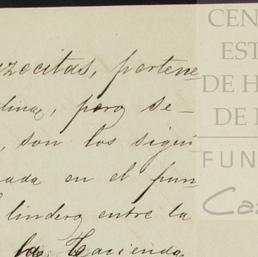 zocitas, pertene
dina, pero se-
, son los sigui
ada en el pun
lindero entre la
la Hacienda
CEN
EST
DE H
DE
FUN
Ca